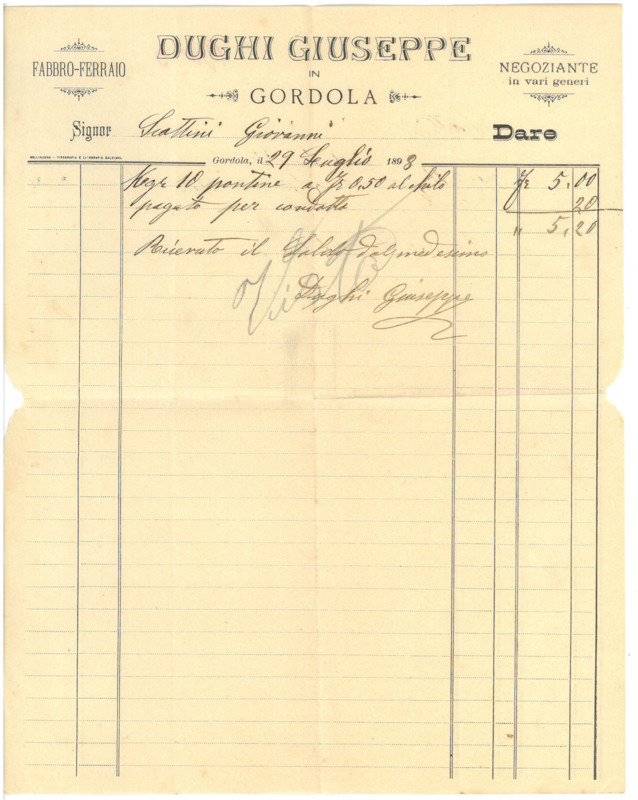 DUGHI GIUSEPPE
IN
GORDOLA
FABBRO-FERRAIO
NEGOZIANTE
in vari generi
Signor Scattini Giovanni Dare
BELLINZONA - TIPOGRAFIA E LIT.
Gordola, il 29 Luglio 1893
10 pontine a fr 0,50 al chilo fr 5.00
pagato per condotta 20
" 5,20
Ricevuto il Saldo dal medesimo
Dughi Giuseppe